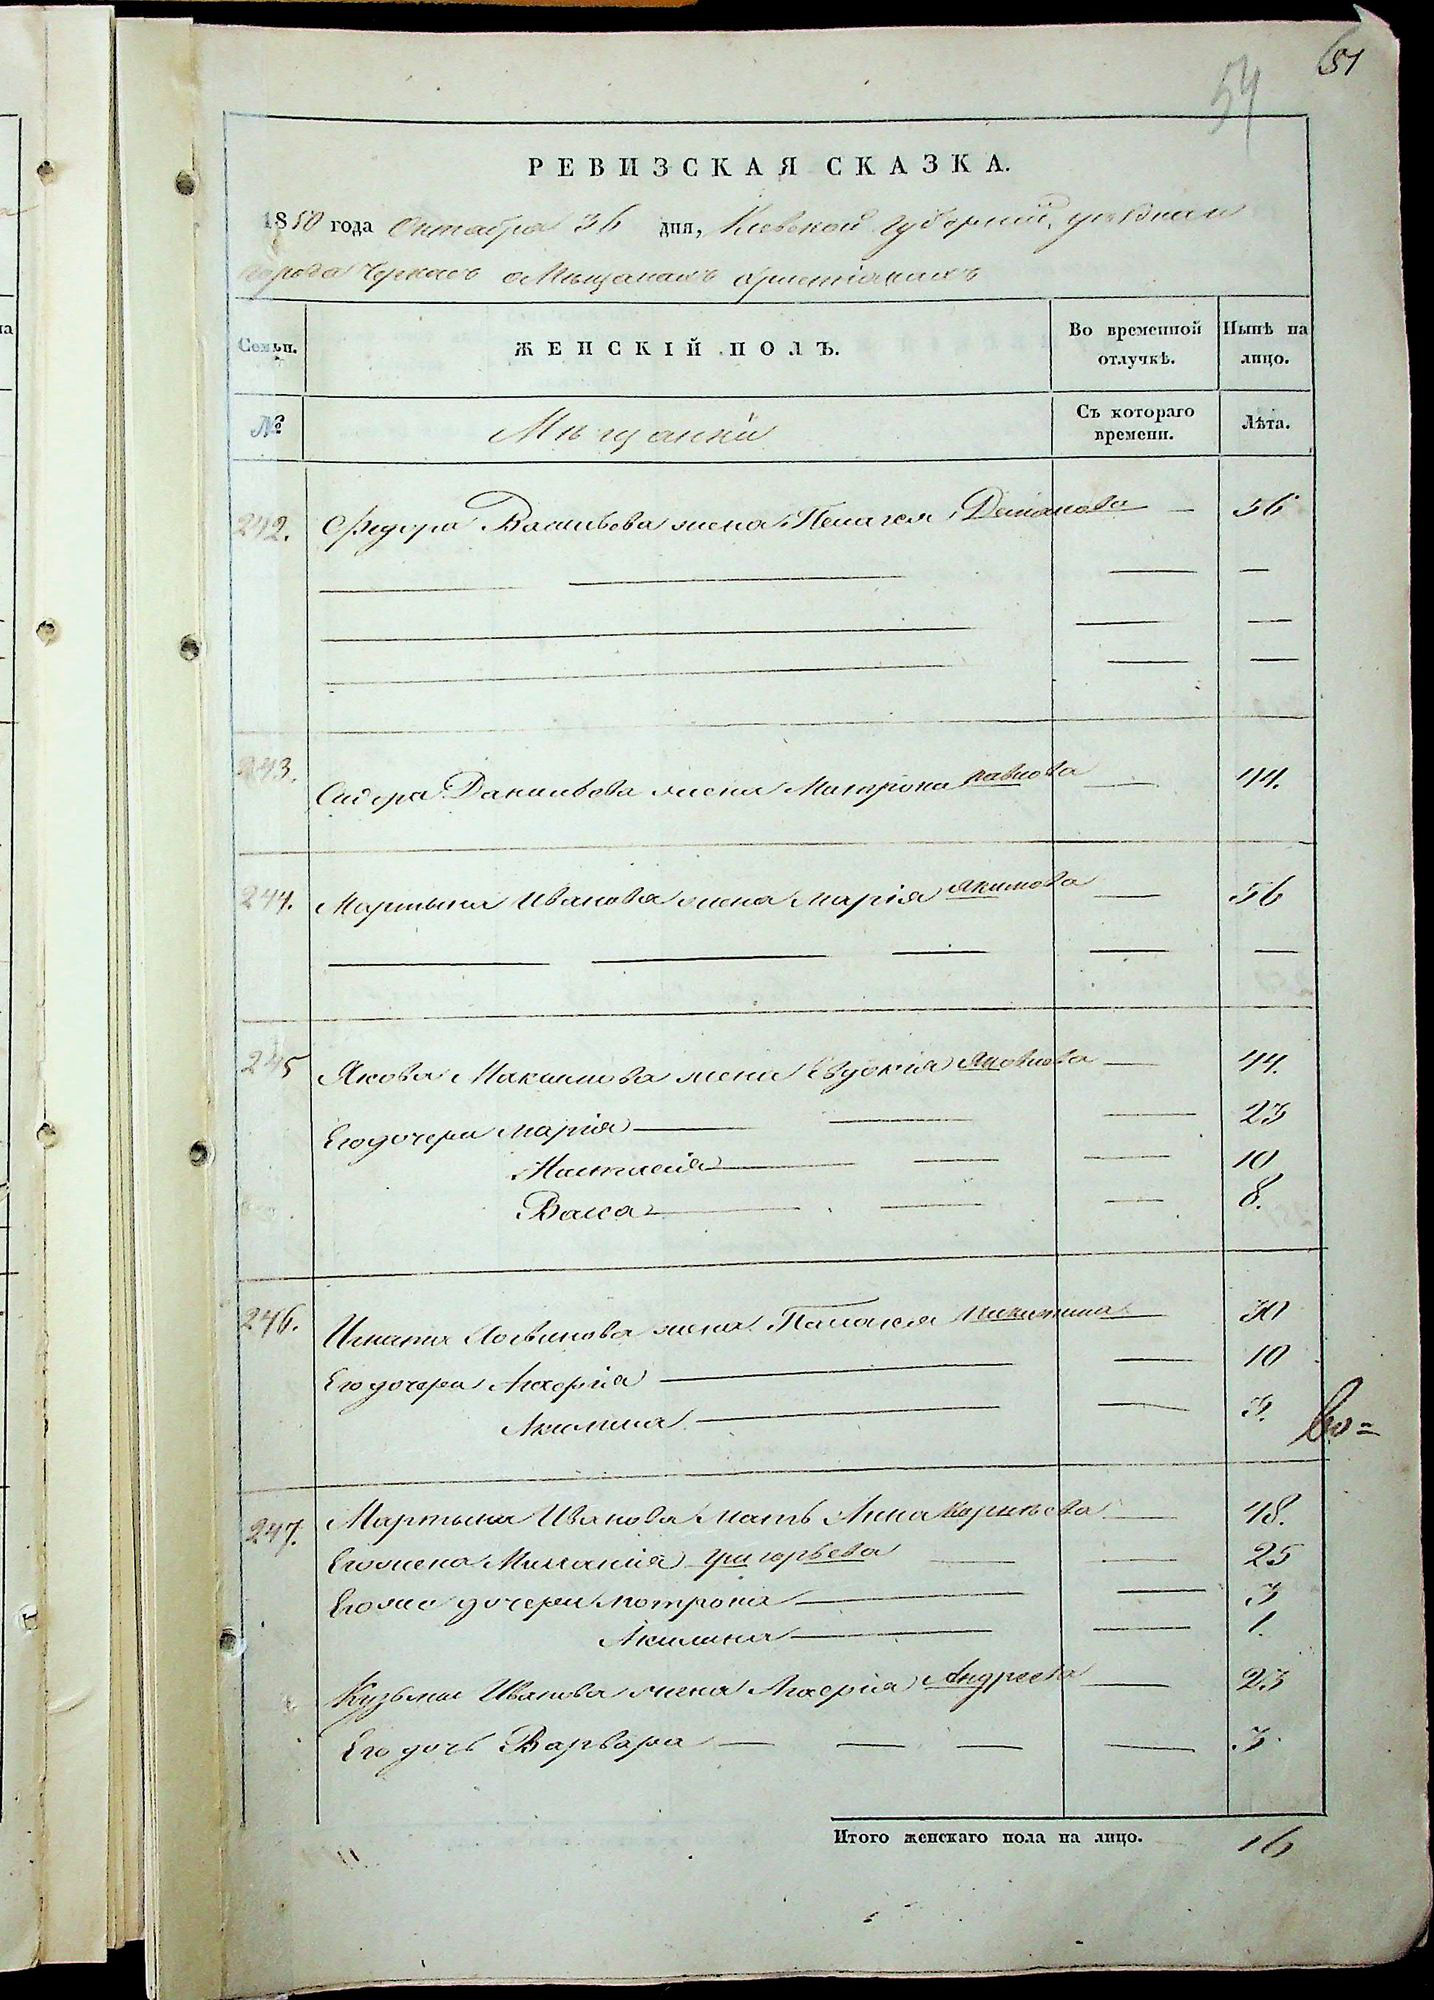 51
54
РЕВИЗСКАЯ СКАЗКА.
1850 года Октября 3б дня, Киевской губерніи, уѣзднаго
города Черкасъ о Мѣщанахъ христіанахъ
Семьи. ЖЕНСКІЙ ПОЛЪ. Во временной отлучкѣ. Нынѣ на лицо.
№ Мѣщанки Съ котораго времени. Лѣта.
242. Федора Васильева жена Пелагея Деманова — 56
243. Сидора Данильева жена Матрона павлова — 44.
244. Мартына Иванова жена Марія Акимова — 56
245 Якова Максимова жена Евдокія Яковлева — 44.
Его дочери Марія — 23
Настасія — 10
Васса — 8.
246. Игната Логвинова жена Палагея Никитина — 30
Его дочери Агафія — 10
Акилина — 3.
247. Мартына Иванова мать Анна Корнѣева — 48.
Его жена Маланія григорьева — 25
Его же дочери Мотрона — 3
Акилина — 1.
Кузьмы Иванова жена Агафія Андреева — 23
Его дочь Варвара — 3.
Итого женскаго пола на лицо. 16